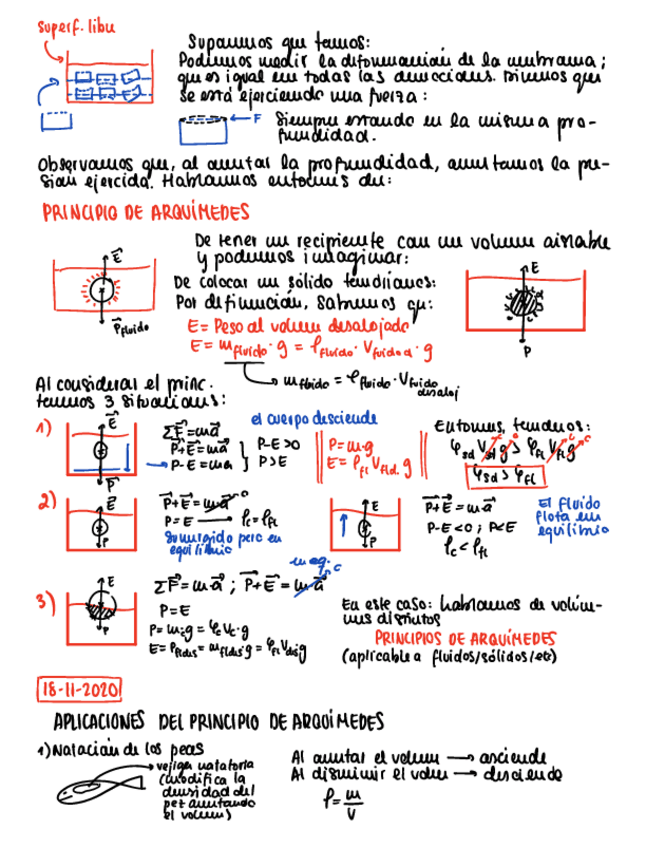 Superf. libre
Suponemos que tenemos:
Podemos medir la deformación de la membrana;
que es igual en todas las direcciones. Diremos que
se está ejerciendo una fuerza:
F
Siempre estando en la misma pro-
fundidad.
Observamos que, al aumentar la profundidad, aumentamos la pre-
sión ejercida. Hablamos entonces de:
PRINCIPIO DE ARQUÍMEDES
De tener un recipiente con un volumen aislable
y podemos imaginar:
E
P fluido
De colocar un sólido tendríamos:
Por definición, sabemos que:
E = Peso al volumen desalojado
E = m fluido · g = ρ fluido · V fluido d · g
m fluido = ρ fluido · V fluido desaloj
E
P
Al considerar el princ.
tenemos 3 situaciones:
1)
E
P
ΣF = m·a
P+E = m·a
P-E = ma
el cuerpo desciende
P-E>0
P>E
P = m·g
E = ρfl Vfld. g
Entonces, tenemos:
ρsd Vsd g > ρfl Vfl g
ρsd > ρfl
2)
E
P
P+E = m·a 0
P = E → ρc = ρfl
Sumergido pero en
equilibrio
E
P
P+E = m·a
P-E<0 ; P<E
ρc < ρfl
El fluido
flota en
equilibrio
3)
E
P
ΣF = m·a ; P+E = m·a
en eq.
P = E
P = m·g = ρc Vc · g
E = Pfldes = mfldes · g = ρfl Vdes g
En este caso: hablamos de volúme-
nes distintos
PRINCIPIOS DE ARQUÍMEDES
(aplicable a fluidos/sólidos/etc)
18-11-2020
APLICACIONES DEL PRINCIPIO DE ARQUÍMEDES
1) Natación de los peces
vejiga natatoria
(modifica la
densidad del
pez aumentando
el volumen)
Al aumentar el volumen → asciende
Al disminuir el volumen → desciende
ρ = m/V